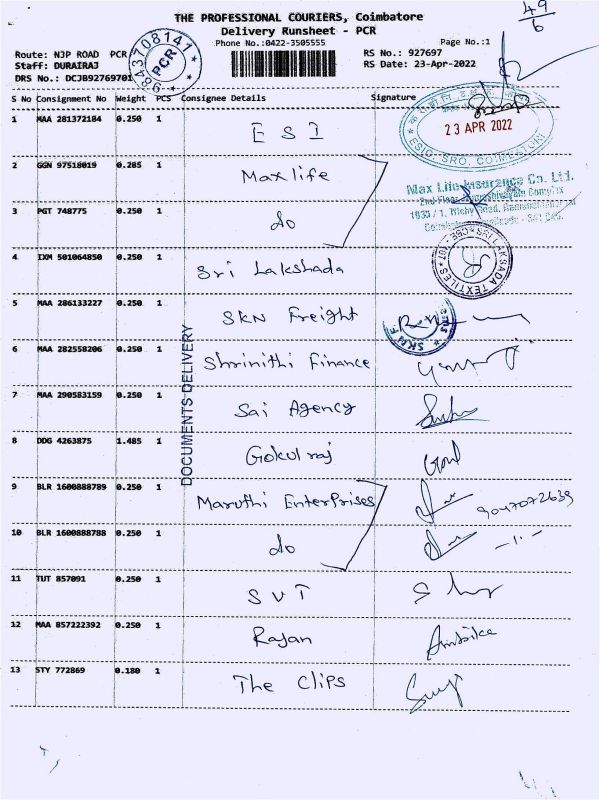 THE PROFESSIONAL COURIERS, Coimbatore
49
6
Delivery Runsheet - PCR
Phone No.:0422-3505555
Page No.:1
Route: NJP ROAD PCR
RS No.: 927697
Staff: DURAIRAJ
RS Date: 23-Apr-2022
DRS No.: DCJB92769701
9843708141
PCR
S No Consignment No Weight PCS Consignee Details Signature
1 MAA 281372184 0.250 1 ESI
23 APR 2022
ESIC, SRO, COIMBATORE
2 GGN 97518019 0.285 1 Maxlife
Max Life Insurance Co. Ltd.
3 PGT 748775 0.250 1 do
4 IXM 501064850 0.250 1 Sri Lakshada
SRI LAKSADA TEXTILES
5 MAA 286133227 0.250 1 SKN Freight
6 MAA 282558206 0.250 1 Shrinithi Finance
DOCUMENTS-DELIVERY
7 MAA 290583159 0.250 1 Sai Agency
8 DDG 4263875 1.485 1 Gokul raj
9 BLR 1600888789 0.250 1 Maruthi Enterprises 9047072639
10 BLR 1600888788 0.250 1 do -1-
11 TUT 857091 0.250 1 SVT
12 MAA 857222392 0.250 1 Rajan Ambika
13 STY 772869 0.180 1 The Clips